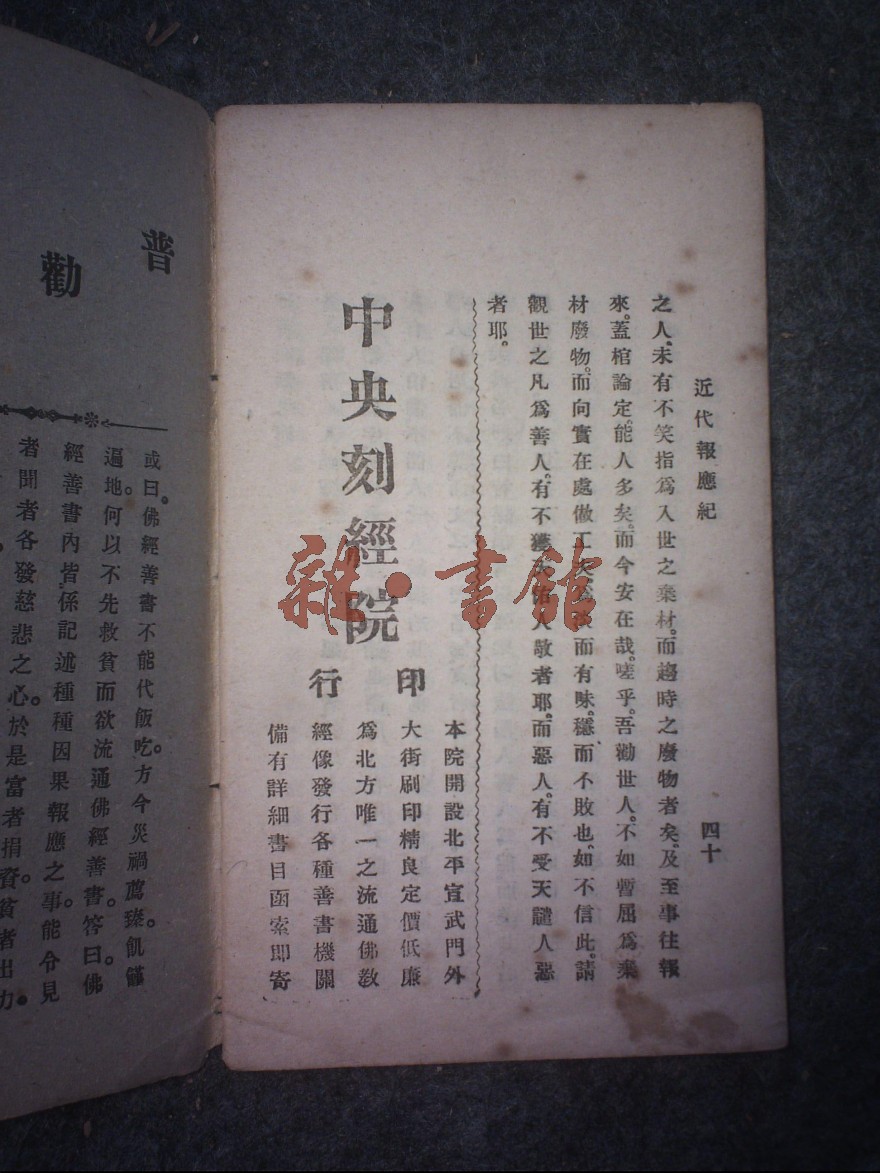 近代報應紀
四十
之人。未有不笑指為入世之棄材。而趨時之廢物者矣。及至事往報
來。蓋棺論定。能人多矣。而今安在哉。嗟乎。吾勸世人。不如暫屈為棄
材廢物。而向實在處做工夫為淡而有味。穩而不敗也。如不信此。請
觀世之凡為善人。有不獲天佑人敬者耶。而惡人。有不受天譴人惡
者耶。
中央刻經院
印行
本院開設北平宣武門外
大街刷印精良定價低廉
為北方唯一之流通佛教
經像發行各種善書機關
備有詳細書目函索即寄
雜·書館
普勸
或曰。佛經善書不能代飯吃。方今災禍薦臻。飢饉
遍地。何以不先救貧而欲流通佛經善書。答曰。佛
經善書內皆係記述種種因果報應之事。能令見
者聞者各發慈悲之心。於是富者捐資。貧者出力。